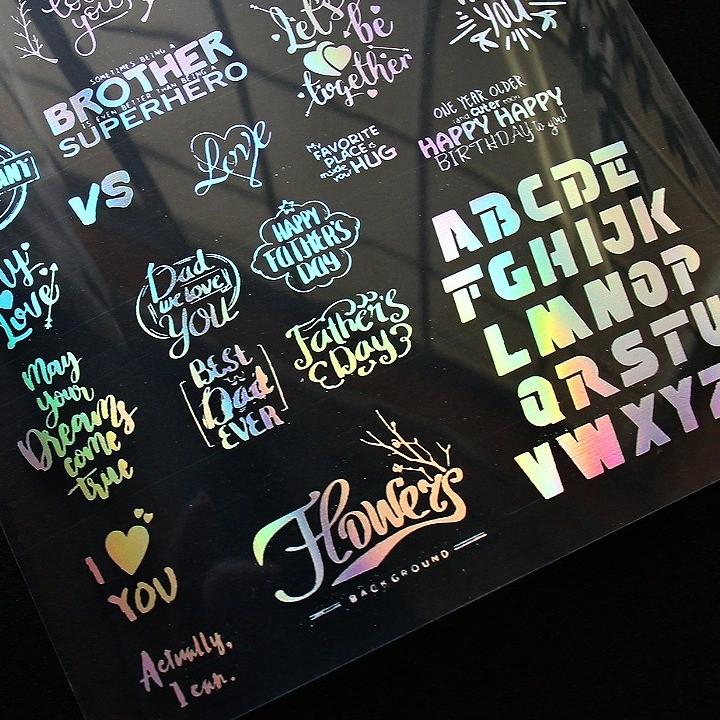 you
you
Let's
be
together
SOMETIMES BEING A
BROTHER
IS EVEN BETTER THAN BEING A
SUPERHERO
ONE YEAR OLDER
and cuter too
HAPPY HAPPY
BIRTHDAY to you!
Love
MY
FAVORITE
PLACE is
inside
YOUR HUG
VS
HAPPY
FATHER'S
DAY
Dad
we love
You
Love
Father's
Day
BEST
Dad
EVER
May
your
Dreams
come
true
ABCDE
FGHIJK
LMNOP
QRSTU
VWXYZ
Flowers
BACKGROUND
I
YOU
Actually,
I can.